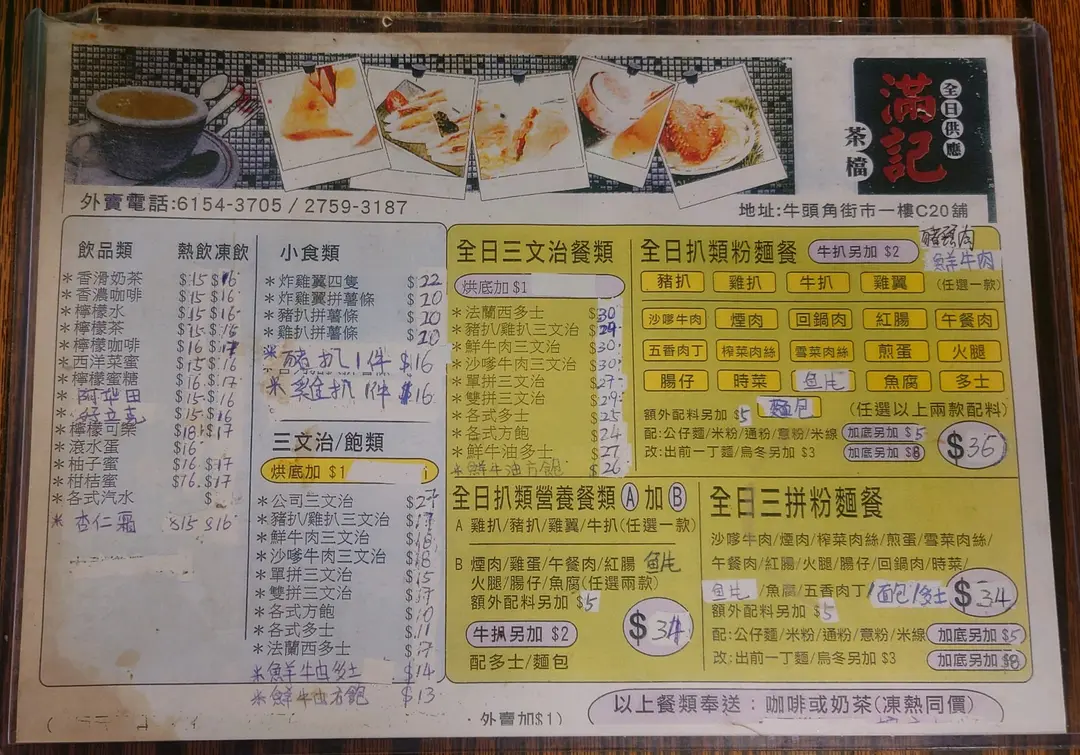 滿記
茶檔
全日供應
外賣電話:6154-3705 / 2759-3187
地址:牛頭角街市一樓C20舖
飲品類 熱飲 凍飲
*香滑奶茶 $15 $16
*香濃咖啡 $15 $16
*檸檬水 $15 $16
*檸檬茶 $15 $16
*檸檬咖啡 $16 $17
*西洋菜蜜 $15 $16
*檸檬蜜糖 $16 $17
*阿華田 $15 $16
*好立克 $15 $16
*檸檬可樂 $18 $17
*滾水蛋 $16
*柚子蜜 $16 $17
*柑桔蜜 $16 $17
*各式汽水 $
*杏仁霜 $15 $16
小食類
*炸雞翼四隻 $22
*炸雞翼拼薯條 $20
*豬扒拼薯條 $20
*雞扒拼薯條 $20
*豬扒1件 $16
*雞扒1件 $16
三文治/飽類
烘底加 $1
*公司三文治 $27
*豬扒/雞扒三文治 $17
*鮮牛肉三文治 $18
*沙嗲牛肉三文治 $18
*單拼三文治 $15
*雙拼三文治 $17
*各式方飽 $10
*各式多士 $11
*法蘭西多士 $17
*鮮牛油多士 $14
*鮮牛油方飽 $13
全日三文治餐類
烘底加 $1
*法蘭西多士 $30
*豬扒/雞扒三文治 $29
*鮮牛肉三文治 $30
*沙嗲牛肉三文治 $30
*單拼三文治 $27
*雙拼三文治 $29
*各式多士 $25
*各式方飽 $24
*鮮牛油多士 $27
*鮮牛油方飽 $26
全日扒類粉麵餐 牛扒另加 $2
鮮牛肉
豬扒 雞扒 牛扒 雞翼 (任選一款)
沙嗲牛肉 煙肉 回鍋肉 紅腸 午餐肉
五香肉丁 榨菜肉絲 雪菜肉絲 煎蛋 火腿
腸仔 時菜 魚乸 魚腐 多士
額外配料另加 $5 麵包 (任選以上兩款配料)
配:公仔麵/米粉/通粉/意粉/米線 加底另加 $5
改:出前一丁麵/烏冬另加 $3 加底另加 $8
$36
全日扒類營養餐類 A 加 B
A 雞扒/豬扒/雞翼/牛扒(任選一款)
B 煙肉/雞蛋/午餐肉/紅腸
火腿/腸仔/魚腐(任選兩款)
額外配料另加 $5
牛扒另加 $2
配多士/麵包
$34
全日三拼粉麵餐
沙嗲牛肉/煙肉/榨菜肉絲/煎蛋/雪菜肉絲/
午餐肉/紅腸/火腿/腸仔/回鍋肉/時菜/
/魚腐/五香肉丁/面包/多士
額外配料另加 $5
$34
配:公仔麵/米粉/通粉/意粉/米線 加底另加 $5
改:出前一丁麵/烏冬另加 $3 加底另加 $8
外賣加$1)
以上餐類奉送:咖啡或奶茶(凍熱同價)